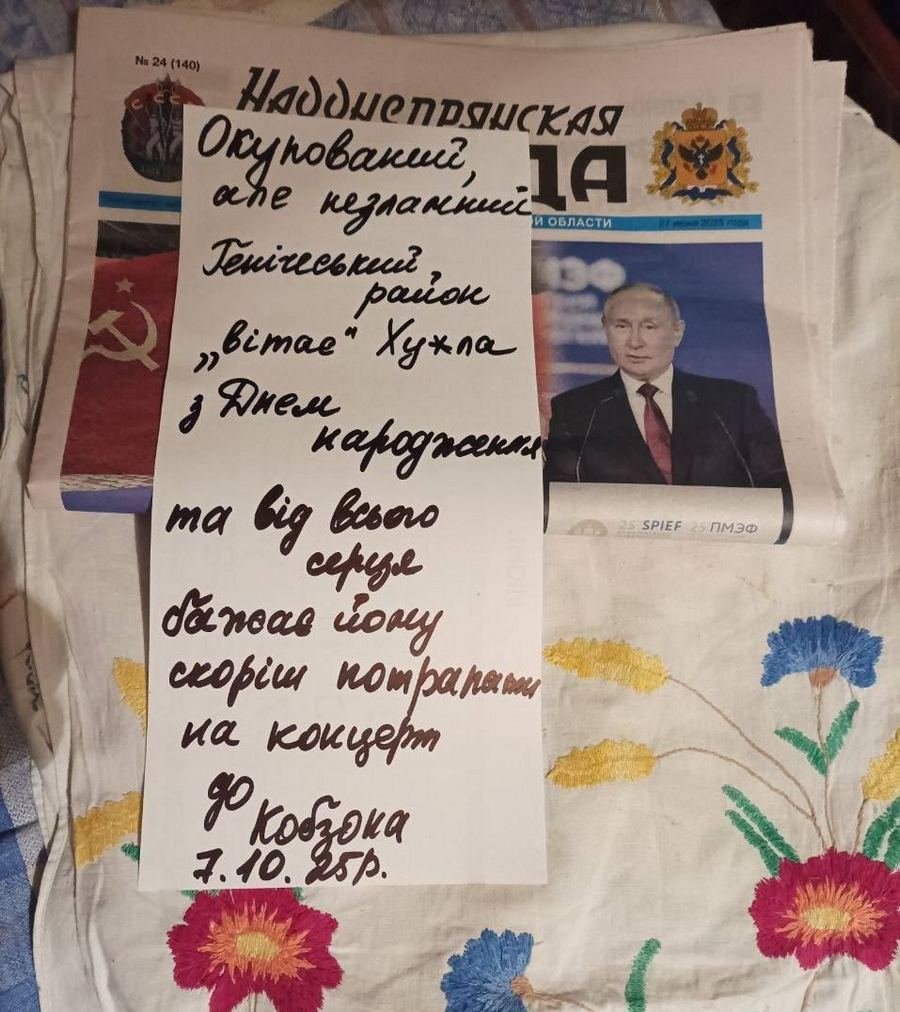 № 24 (140)
НАДДНЕПРЯНСКАЯ
ДА
ОЙ ОБЛАСТИ
27 июня 2025 года
Окупований,
але незламний
Генічеський
район
„вітає“ Ху*ла
з Днем
народження
та від всього
серця
бажає йому
скоріш потрапити
на концерт
до
Кобзона
7.10.25р.
МЭФ
25 SPIEF 25 ПМЭФ